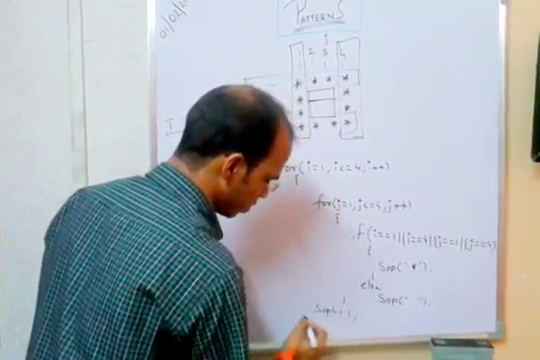 01/02/20
PATTERNS
j
1 2 3 4
* * * *
* *
* *
* * * *
for(i=1, i<=4, i++)
{
for(j=1, j<=4, j++)
{
if(i==1||i==4||j==1||j==4)
{
Sop("*");
else
Sop(" ");
Sopln();